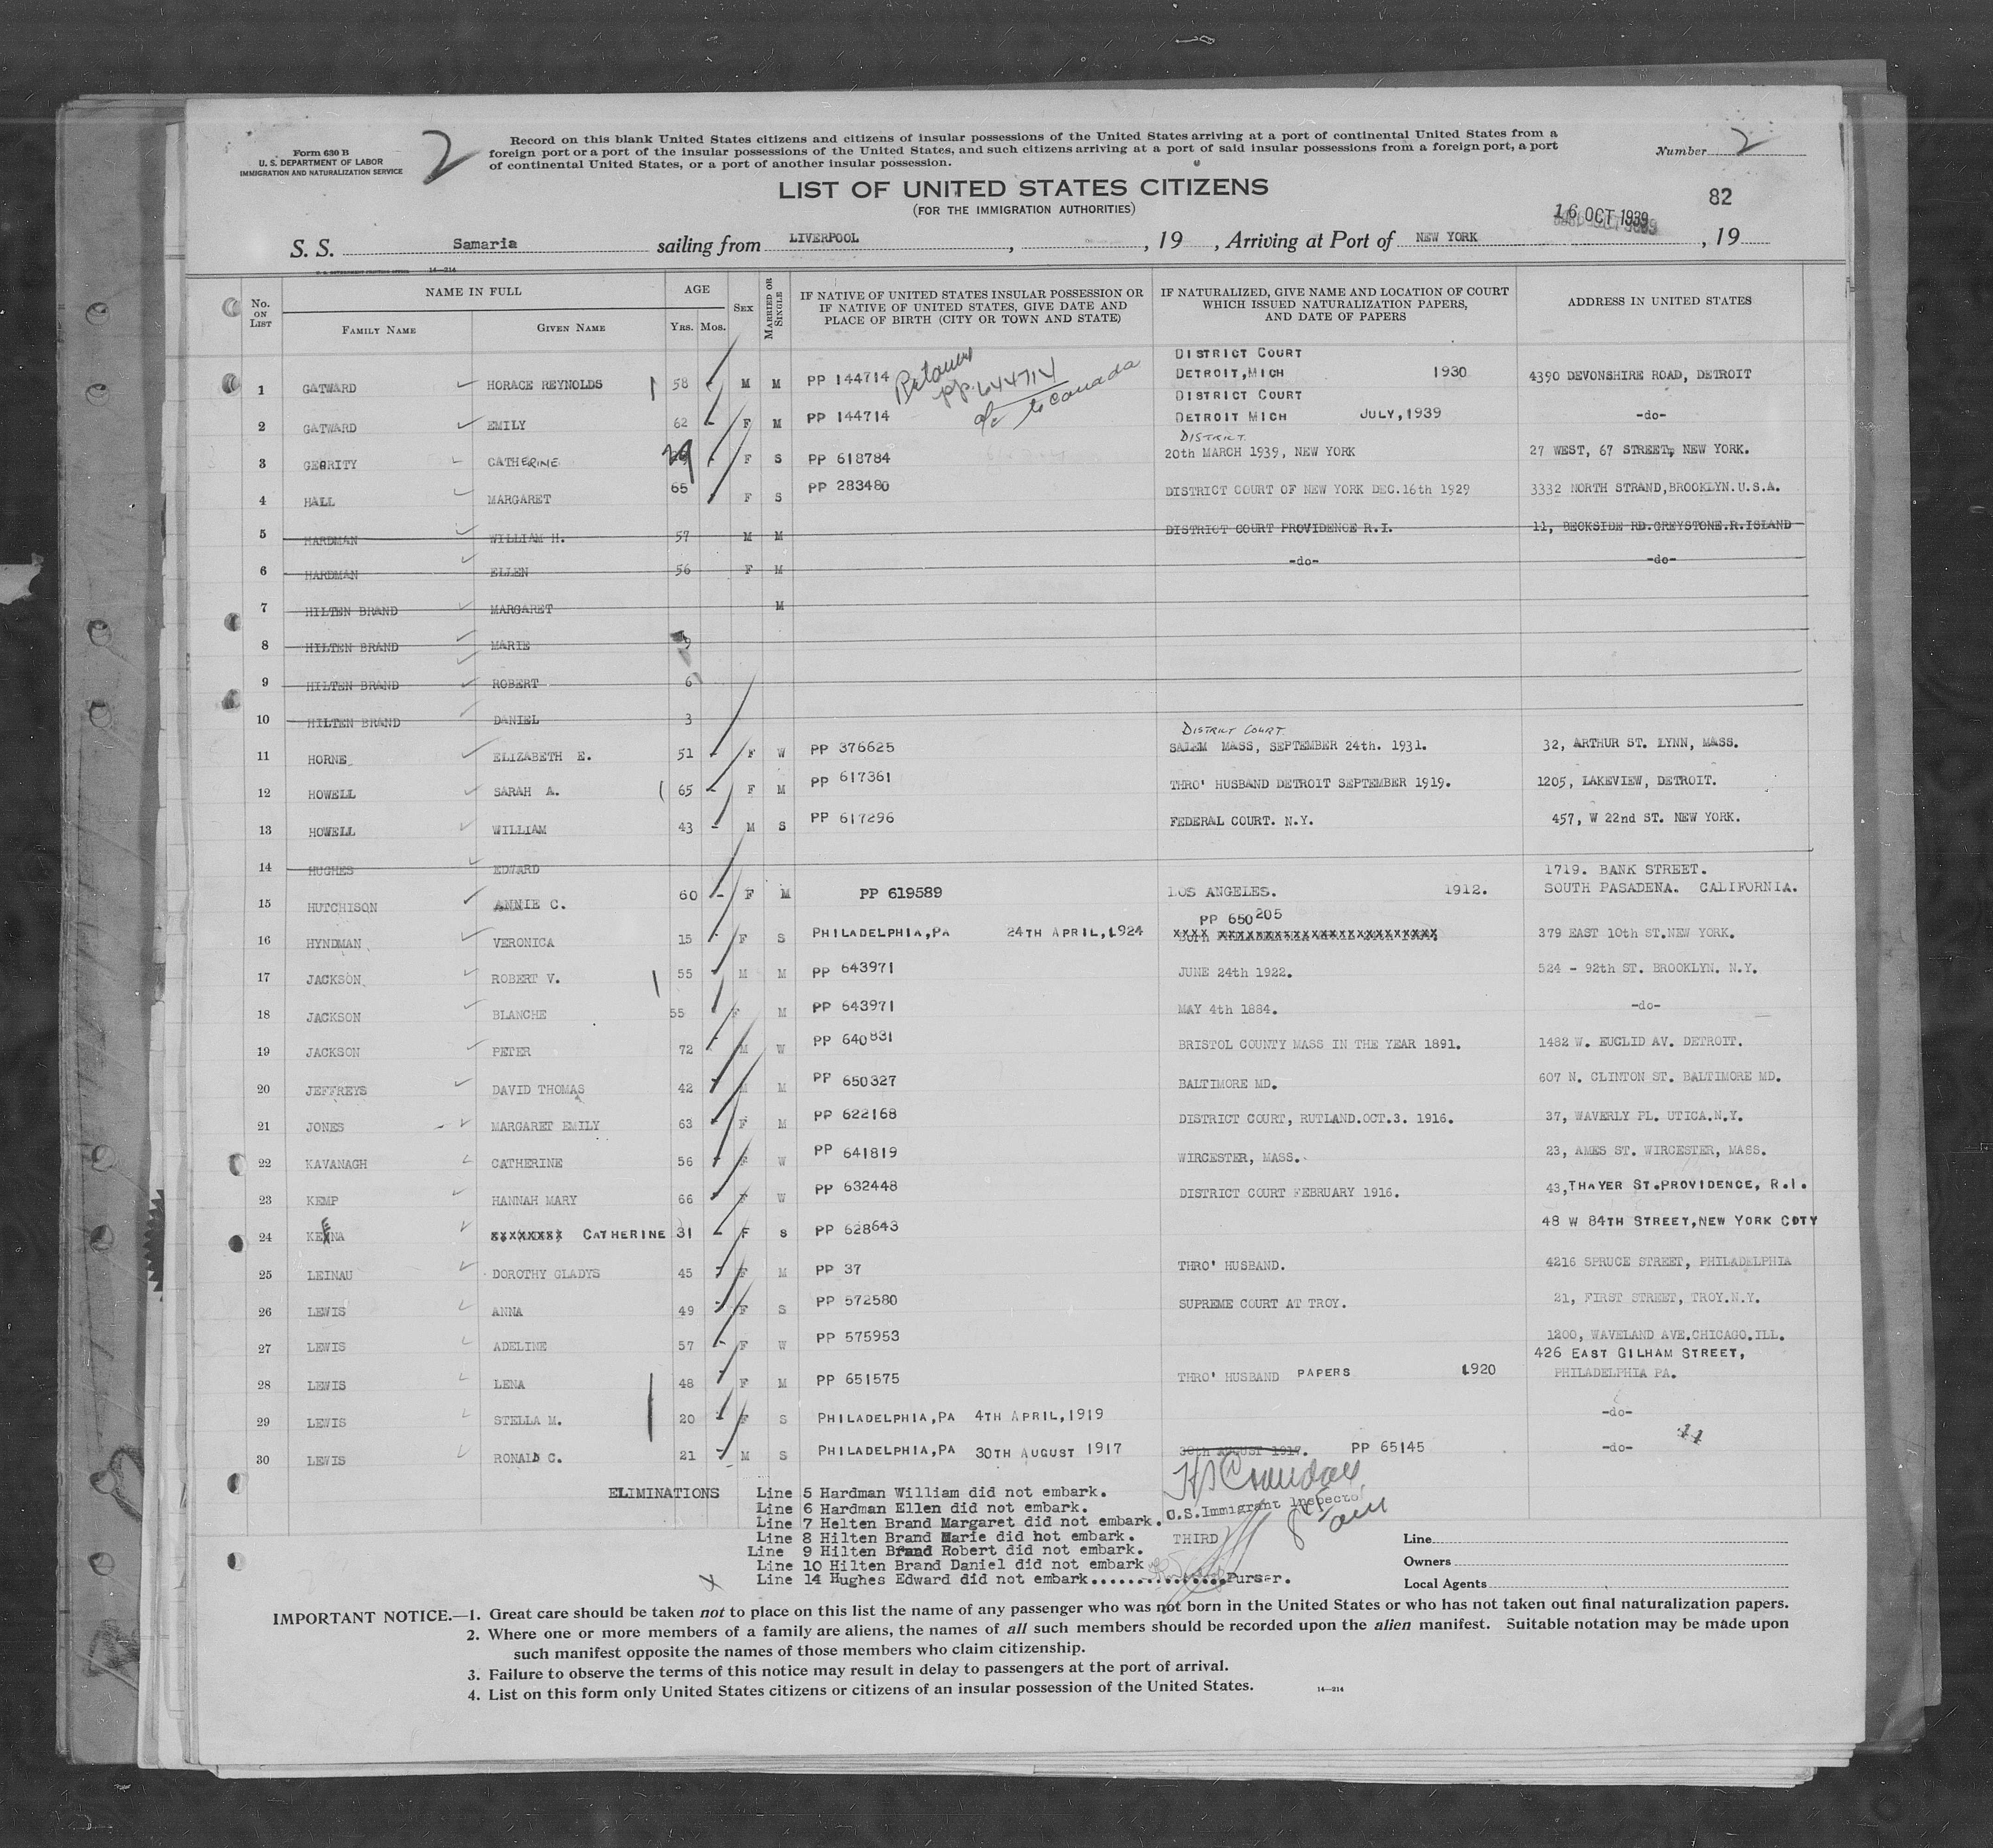 Form 630 B
U. S. DEPARTMENT OF LABOR
IMMIGRATION AND NATURALIZATION SERVICE
2
Record on this blank United States citizens and citizens of insular possessions of the United States arriving at a port of continental United States from a
foreign port or a port of the insular possessions of the United States, and such citizens arriving at a port of said insular possessions from a foreign port, a port
of continental United States, or a port of another insular possession.
Number 2
LIST OF UNITED STATES CITIZENS
(FOR THE IMMIGRATION AUTHORITIES)
82
16 OCT 1939
S. S. Samaria sailing from LIVERPOOL , , 19 , Arriving at Port of NEW YORK , 19
No. ON LIST NAME IN FULL FAMILY NAME GIVEN NAME AGE YRS. MOS. SEX MARRIED OR SINGLE IF NATIVE OF UNITED STATES INSULAR POSSESSION OR IF NATIVE OF UNITED STATES, GIVE DATE AND PLACE OF BIRTH (CITY OR TOWN AND STATE) IF NATURALIZED, GIVE NAME AND LOCATION OF COURT WHICH ISSUED NATURALIZATION PAPERS, AND DATE OF PAPERS ADDRESS IN UNITED STATES
1 GATWARD HORACE REYNOLDS 58 - M M PP 144714 PP 644714 to Canada DISTRICT COURT DETROIT,MICH 1930 4390 DEVONSHIRE ROAD, DETROIT
2 GATWARD EMILY 62 - F M PP 144714 DISTRICT COURT DETROIT MICH JULY,1939 -do-
3 GERRITY CATHERINE 29 - F S PP 618784 DISTRICT 20th MARCH 1939, NEW YORK 27 WEST, 67 STREET, NEW YORK.
4 HALL MARGARET 65 F S PP 283480 DISTRICT COURT OF NEW YORK DEC.16th 1929 3332 NORTH STRAND,BROOKLYN.U.S.A.
5 HARDMAN WILLIAM H. 57 M M DISTRICT COURT PROVIDENCE R.I. 11, BECKSIDE RD.GREYSTONE.R.ISLAND
6 HARDMAN ELLEN 56 F M -do- -do-
7 HILTEN BRAND MARGARET M
8 HILTEN BRAND MARIE 9
9 HILTEN BRAND ROBERT 6
10 HILTEN BRAND DANIEL 3
11 HORNE ELIZABETH E. 51 - F W PP 376625 DISTRICT COURT SALEM MASS, SEPTEMBER 24th. 1931. 32, ARTHUR ST. LYNN, MASS.
12 HOWELL SARAH A. 65 - F M PP 617361 THRO' HUSBAND DETROIT SEPTEMBER 1919. 1205, LAKEVIEW, DETROIT.
13 HOWELL WILLIAM 43 - M S PP 617296 FEDERAL COURT. N.Y. 457, W 22nd ST. NEW YORK.
14 HUGHES EDWARD
15 HUTCHISON ANNIE C. 60 - F M PP 619589 LOS ANGELES. 1912. 1719. BANK STREET. SOUTH PASADENA. CALIFORNIA.
16 HYNDMAN VERONICA 15 - F S PHILADELPHIA,PA 24TH APRIL,1924 PP 650205 379 EAST 10th ST.NEW YORK.
17 JACKSON ROBERT V. 55 M M PP 643971 JUNE 24th 1922. 524 - 92th ST. BROOKLYN. N.Y.
18 JACKSON BLANCHE 55 F M PP 643971 MAY 4th 1884. -do-
19 JACKSON PETER 72 M W PP 640831 BRISTOL COUNTY MASS IN THE YEAR 1891. 1482 W. EUCLID AV. DETROIT.
20 JEFFREYS DAVID THOMAS 42 M M PP 650327 BALTIMORE MD. 607 N. CLINTON ST. BALTIMORE MD.
21 JONES MARGARET EMILY 63 F M PP 622168 DISTRICT COURT, RUTLAND.OCT.3. 1916. 37, WAVERLY PL. UTICA.N.Y.
22 KAVANAGH CATHERINE 56 F W PP 641819 WIRCESTER, MASS. 23, AMES ST. WIRCESTER, MASS.
23 KEMP HANNAH MARY 66 F W PP 632448 DISTRICT COURT FEBRUARY 1916. 43,THAYER ST.PROVIDENCE, R.I.
24 KEENA xxxxxxxx CATHERINE 31 - F S PP 628643 48 W 84TH STREET,NEW YORK CITY
25 LEINAU DOROTHY GLADYS 45 - F M PP 37 THRO' HUSBAND. 4216 SPRUCE STREET, PHILADELPHIA
26 LEWIS ANNA 49 - F S PP 572580 SUPREME COURT AT TROY. 21, FIRST STREET, TROY.N.Y.
27 LEWIS ADELINE 57 - F W PP 575953 1200, WAVELAND AVE.CHICAGO.ILL.
28 LEWIS LENA 48 F M PP 651575 THRO' HUSBAND PAPERS 1920 426 EAST GILHAM STREET, PHILADELPHIA PA.
29 LEWIS STELLA M. 20 - F S PHILADELPHIA,PA 4TH APRIL,1919 -do-
30 LEWIS RONALD C. 21 - M S PHILADELPHIA,PA 30TH AUGUST 1917 30th AUGUST 1917. PP 65145 -do-
ELIMINATIONS Line 5 Hardman William did not embark.
Line 6 Hardman Ellen did not embark.
Line 7 Helten Brand Margaret did not embark.
Line 8 Hilten Brand Marie did not embark.
Line 9 Hilten Brand Robert did not embark.
Line 10 Hilten Brand Daniel did not embark
Line 14 Hughes Edward did not embark.................Purser.
U.S. Immigrant Inspector
THIRD
Line
Owners
Local Agents
IMPORTANT NOTICE.—1. Great care should be taken not to place on this list the name of any passenger who was not born in the United States or who has not taken out final naturalization papers.
2. Where one or more members of a family are aliens, the names of all such members should be recorded upon the alien manifest. Suitable notation may be made upon
such manifest opposite the names of those members who claim citizenship.
3. Failure to observe the terms of this notice may result in delay to passengers at the port of arrival.
4. List on this form only United States citizens or citizens of an insular possession of the United States.
14—214